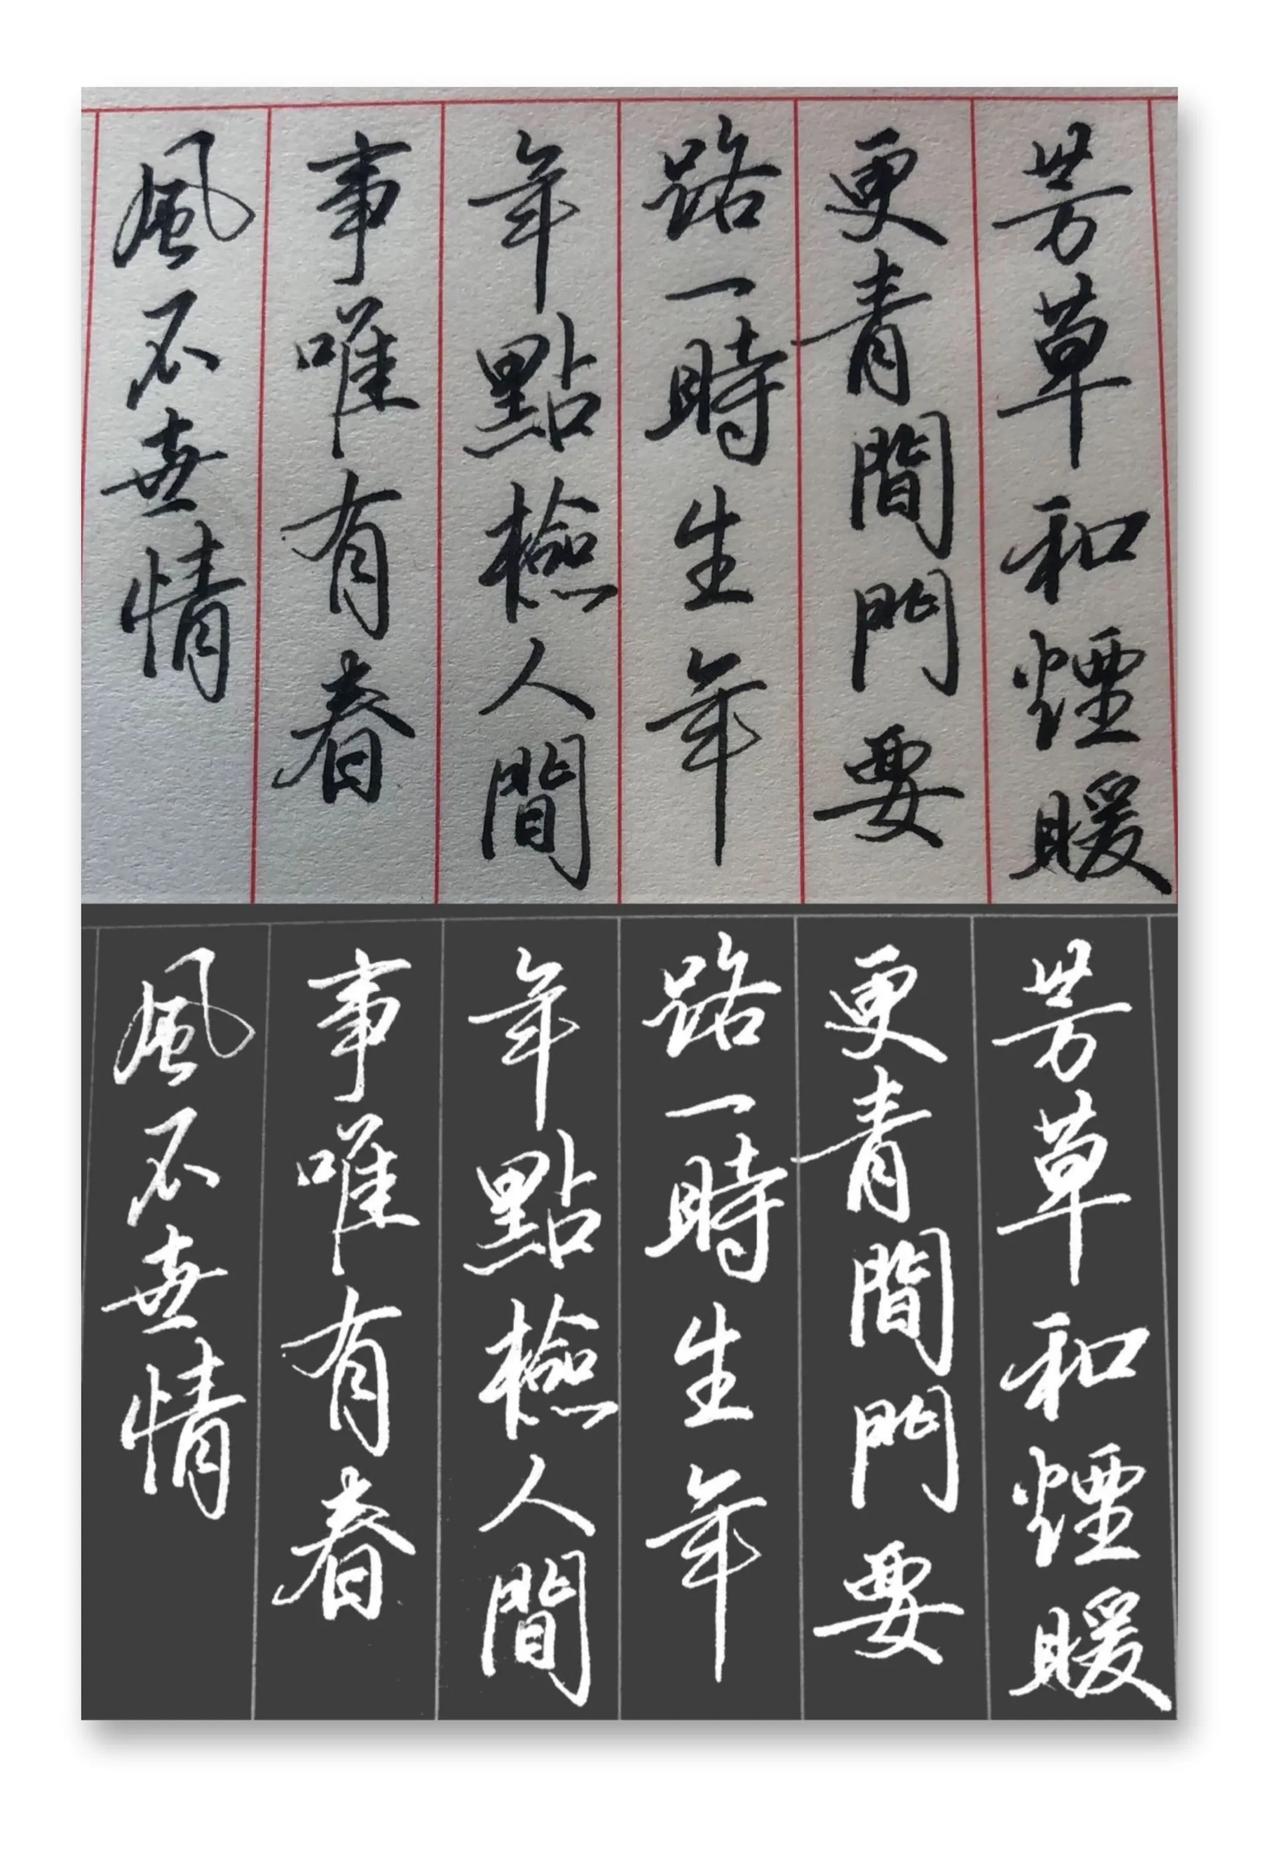 芳草和煙暖
更青閒門要
路一時生年
年點檢人間
事唯有春
風不無情
芳草和煙暖
更青閒門要
路一時生年
年點檢人間
事唯有春
風不無情